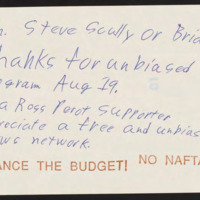 . Steve Scully or Bria
hanks for unbiased
ogram Aug 19.
a Ross Perot supporter
reciate a free and unbias
ws network.
ANCE THE BUDGET! NO NAFTA